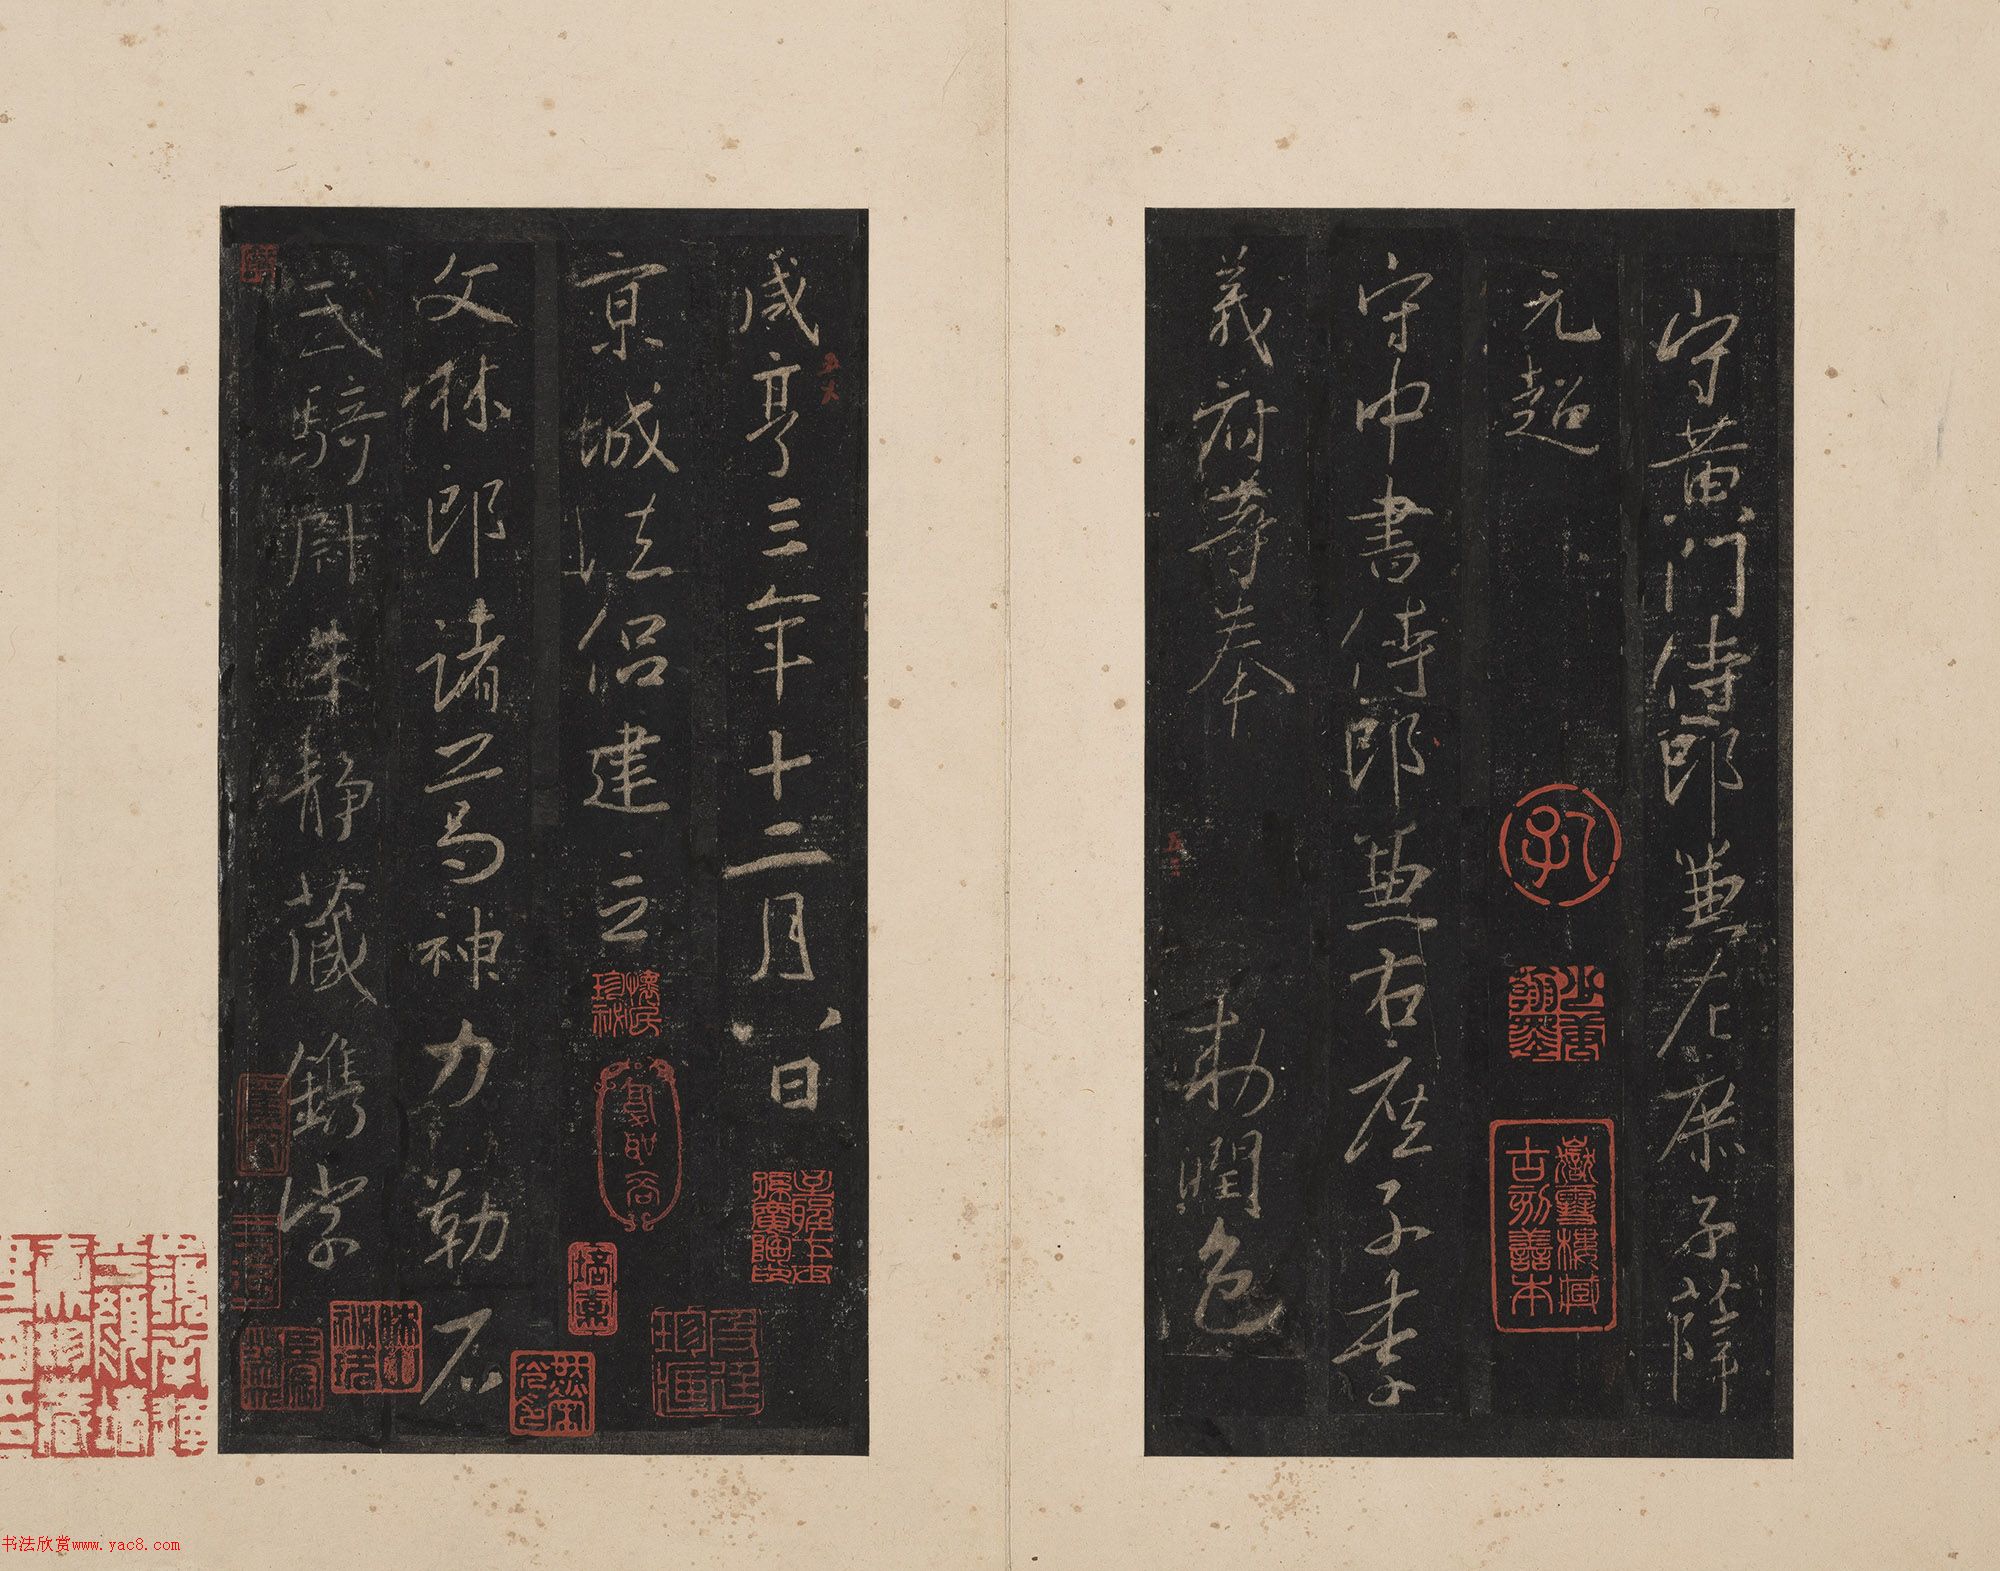 守黄门侍郎兼左庶子薛
元超
守中書侍郎兼右庶子李
義府等奉
勅潤色
咸亨三年十二月八日
京城法侣建立
文林郎諸葛神力勒石
武騎尉朱静藏鐫字
嶽雪樓藏
古刻善本
书法欣赏www.yac8.com